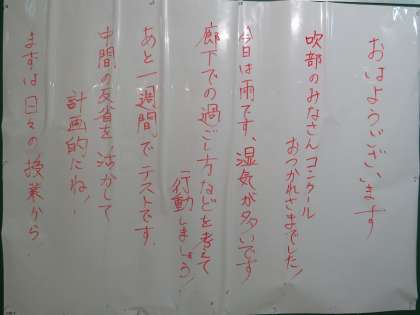 おはようございます
吹部のみなさん コンクール
おつかれさまでした!
今日は雨です、湿気が多いです
廊下での過ごし方などを考えて
行動しましょう!
あと一週間でテストです.
中間の反省を活かして
計画的にね!
まずは日々の授業から.